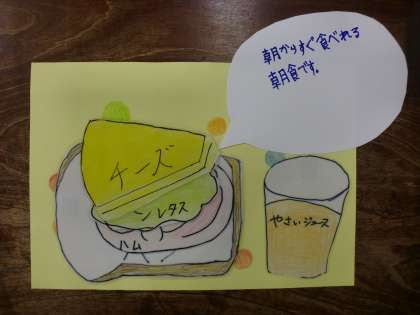 朝からすぐ食べれる
朝食です。
チーズ
レタス
ハム
やさいジュース